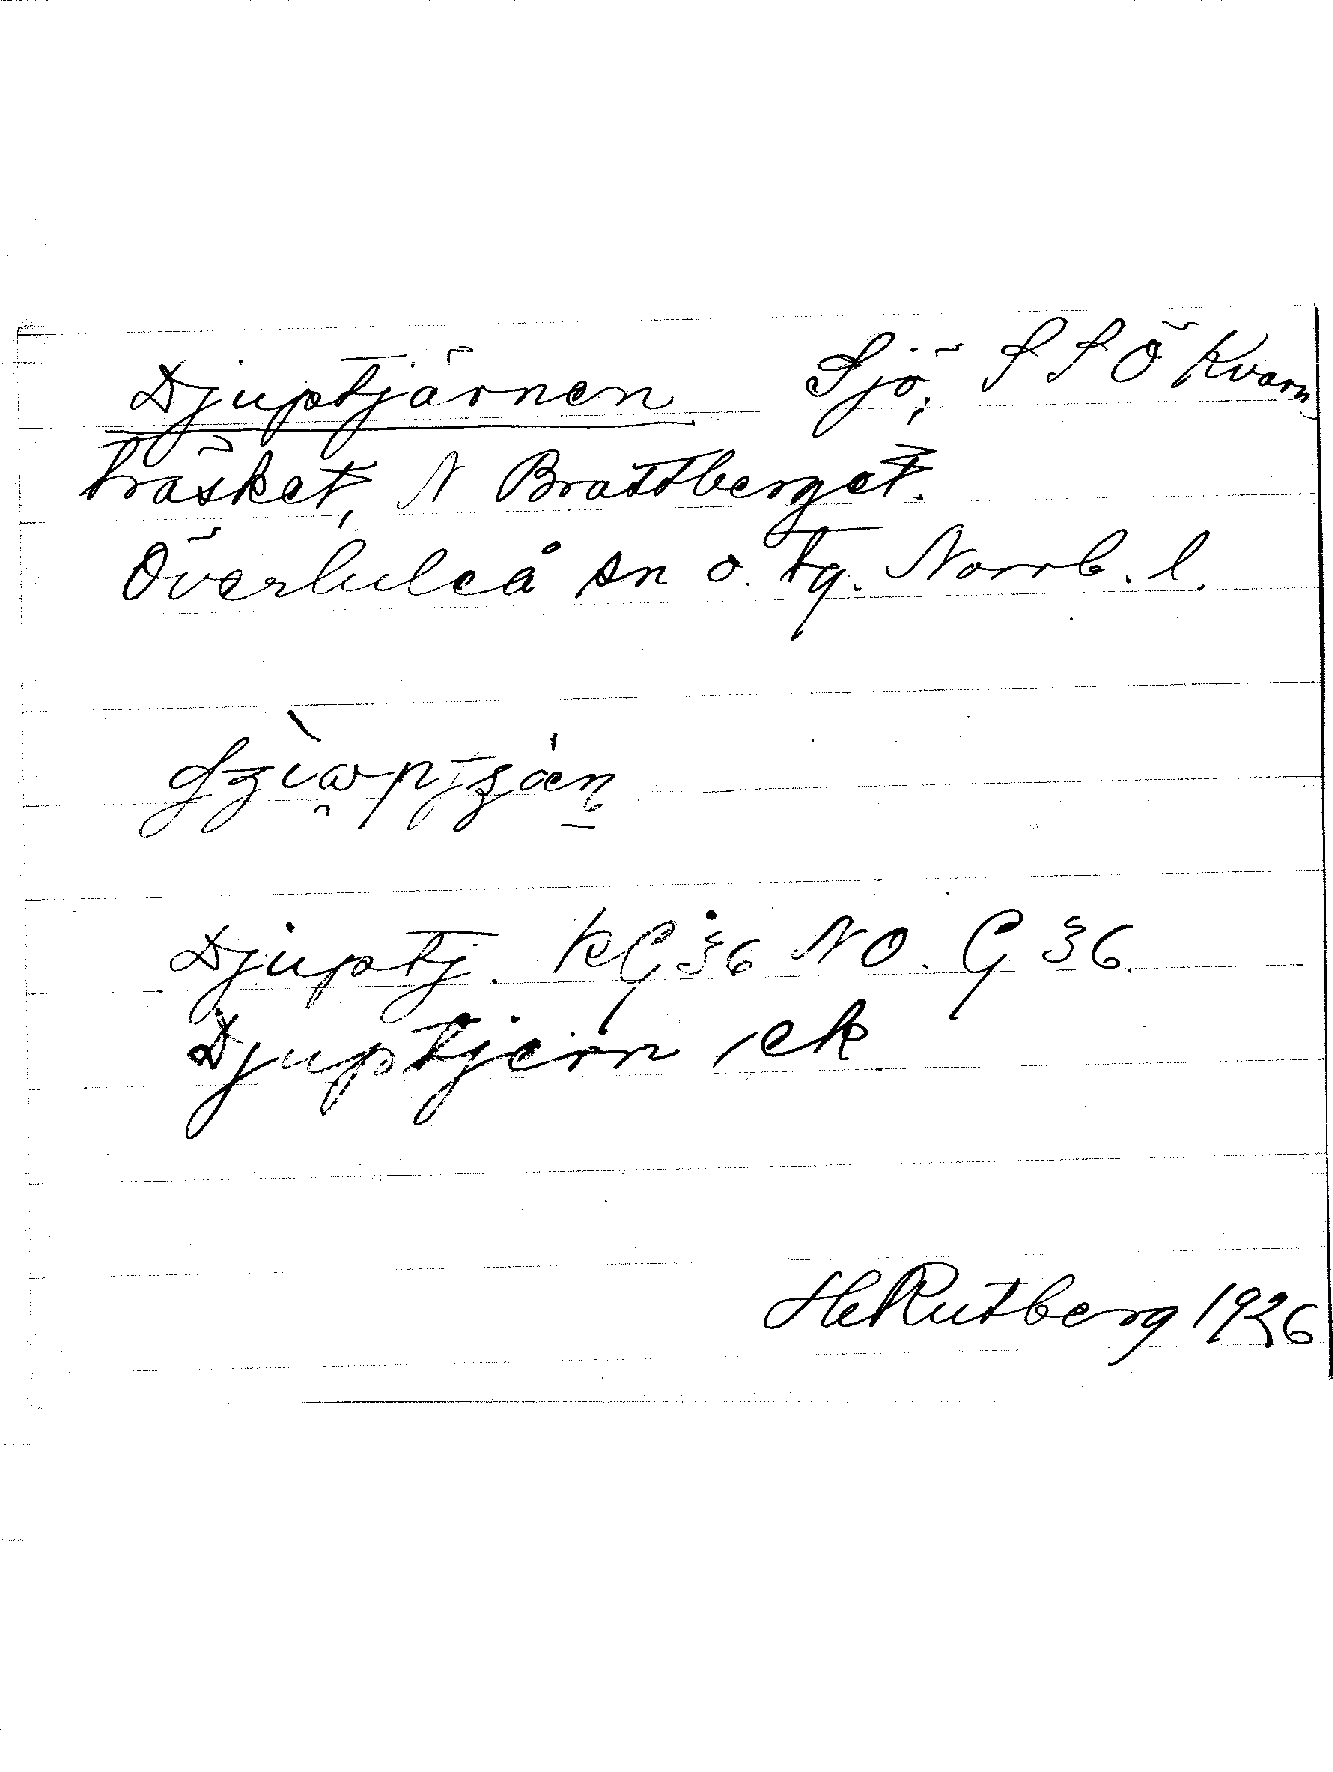 Djuptjärnen Sjö; S S Ö Kvarn
träsket, N Brattberget.
Överluleå sn o. tg. Norrb. l.
Djuptj. KG 36 NO. G 36
Djuptjern, ek
HeRutberg 1926